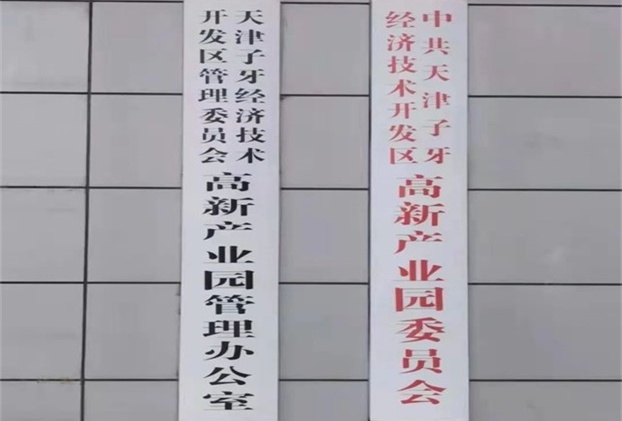 天津子牙经济技术
开发区管理委员会
高新产业园管理办公室
中共天津子牙
经济技术开发区
高新产业园委员会